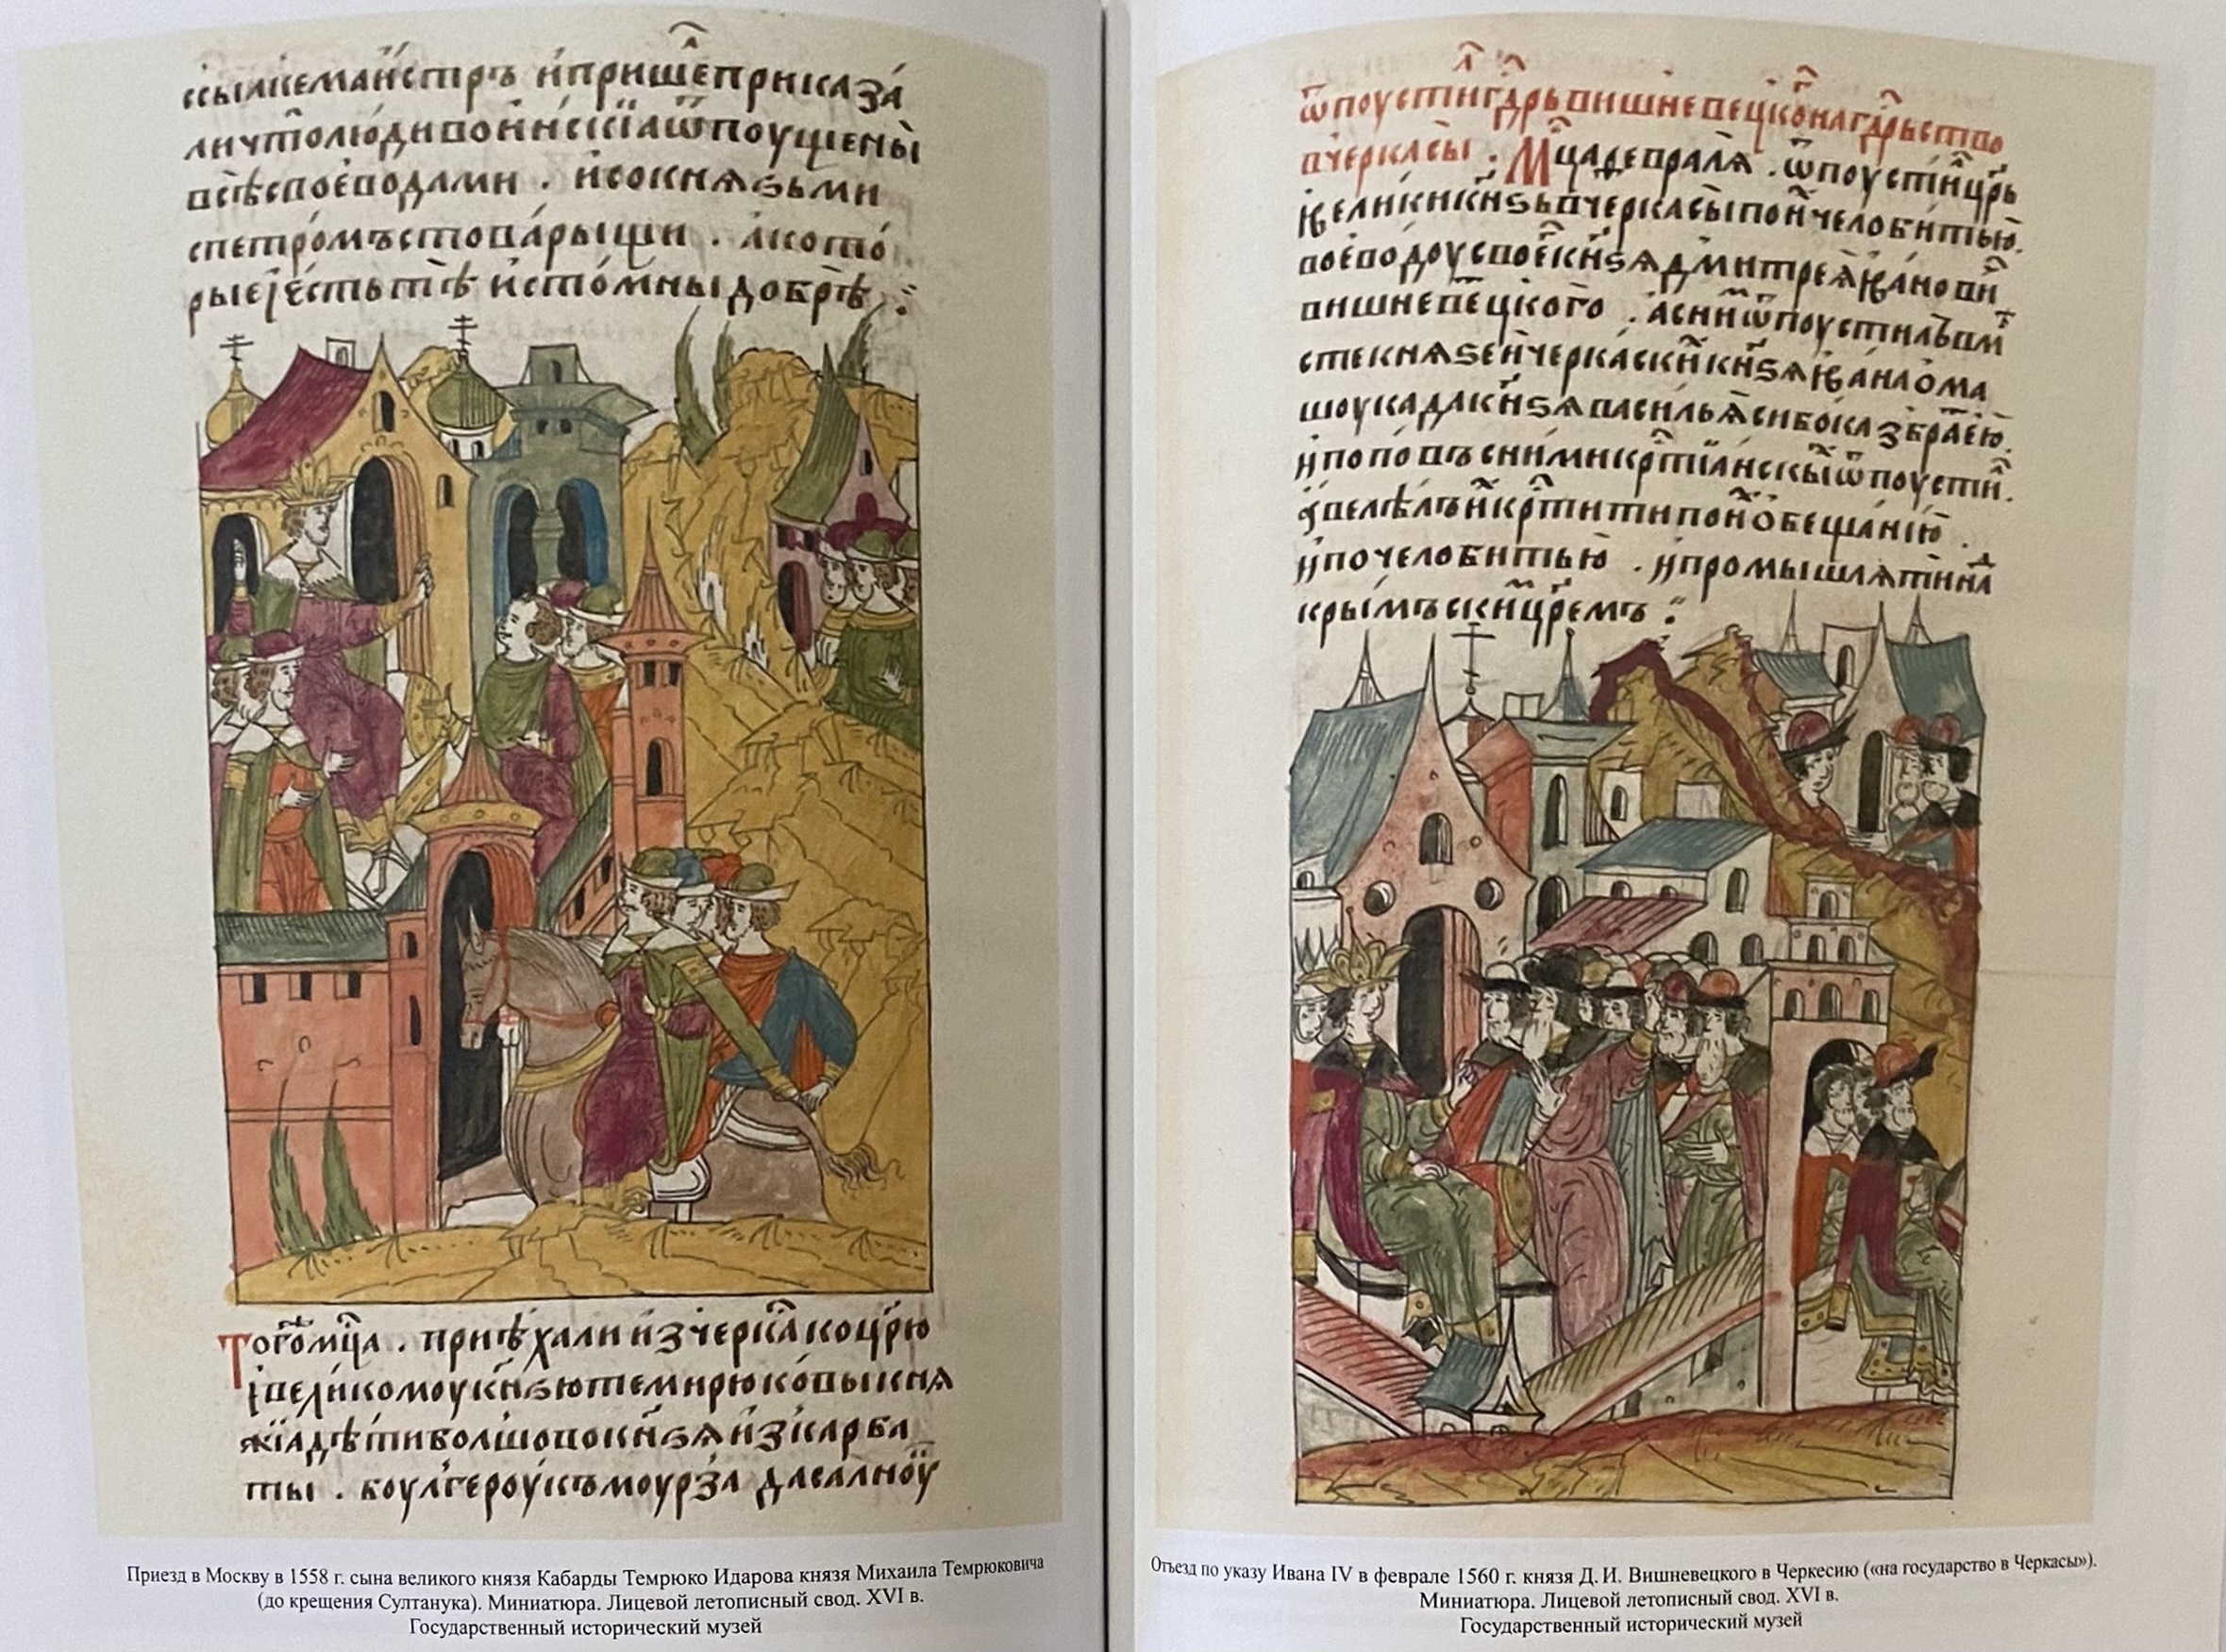 ссылкеманстръ ипришеⷧ҇приказа
личтолюдивоинскїаѿпоущены
всѣсвоеводами . исокнѧзьми
спетромъстоварыщи . акото
рыеіестьтѣ истомныдобрѣ
Тогоⷤмцⷭ҇а . приѣхалиизчеркаⷭ҇коцр҃ю
івеликомоукн҃зютемирюковыкнѧ
жїадѣтиболшовокн҃зѧизкарба
ты . боулгероукъмоурза дасалноуⷦ
Приезд в Москву в 1558 г. сына великого князя Кабарды Темрюко Идарова князя Михаила Темрюковича
(до крещения Султанука). Миниатюра. Лицевой летописный свод. XVI в.
Государственный исторический музей
ѿпоустиⷧгдⷭ҇рьвишневецкоⷢнагдⷭ҇рьство
вчеркасы . Мцⷭ҇адевралѧ . ѿпоустиⷧцр҃ь
ївеликикн҃зьвчеркасыпоиⷯчелобитью.
воеводоусвоеⷢкн҃зѧдмитреѧїванови
вишневецкого . аснимѿпоустилъвм
стекнѧзеичеркаскиⷯкн҃зѧїванаома
шоукадакн҃зѧвасильѧсибоказбратею.
ипоповъснимикртⷭ҇їанскыⷯѿпоустиⷧ.
ївелѣлъиⷯкртⷭ҇итипоиⷯобещанїю .
ипочелобитью . ипромышлѧтина
крымъскиⷨцр҃емъ
Отъезд по указу Ивана IV в феврале 1560 г. князя Д. И. Вишневецкого в Черкесию («на государство в Черкасы»).
Миниатюра. Лицевой летописный свод. XVI в.
Государственный исторический музей